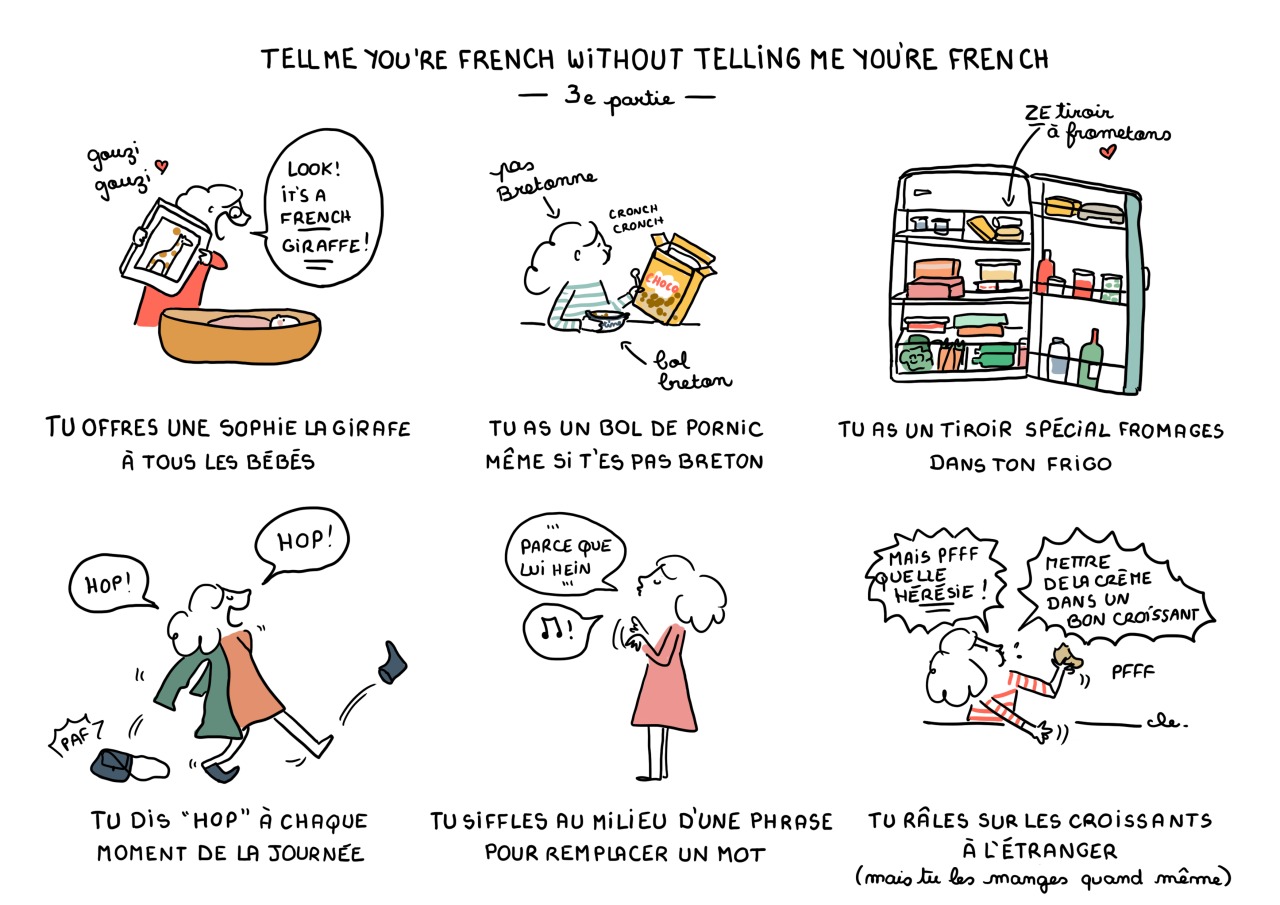 TELL ME YOU'RE FRENCH WITHOUT TELLING ME YOU'RE FRENCH
— 3e partie —
gouzi
gouzi
LOOK!
IT'S A
FRENCH
GIRAFFE!
TU OFFRES UNE SOPHIE LA GIRAFE
À TOUS LES BÉBÉS
pas
Bretonne
CRONCH
CRONCH
CHOCO
bol
breton
TU AS UN BOL DE PORNIC
MÊME SI T'ES PAS BRETON
ZE tiroir
à frometons
TU AS UN TIROIR SPÉCIAL FROMAGES
DANS TON FRIGO
HOP!
HOP!
PAF
TU DIS "HOP" À CHAQUE
MOMENT DE LA JOURNÉE
'''
PARCE QUE
LUI HEIN
'''
♫!
TU SIFFLES AU MILIEU D'UNE PHRASE
POUR REMPLACER UN MOT
MAIS PFFF
QUELLE
HÉRÉSIE !
METTRE
DE LA CRÈME
DANS UN
BON CROISSANT
PFFF
cle.
TU RÂLES SUR LES CROISSANTS
À L'ÉTRANGER
(mais tu les manges quand même)